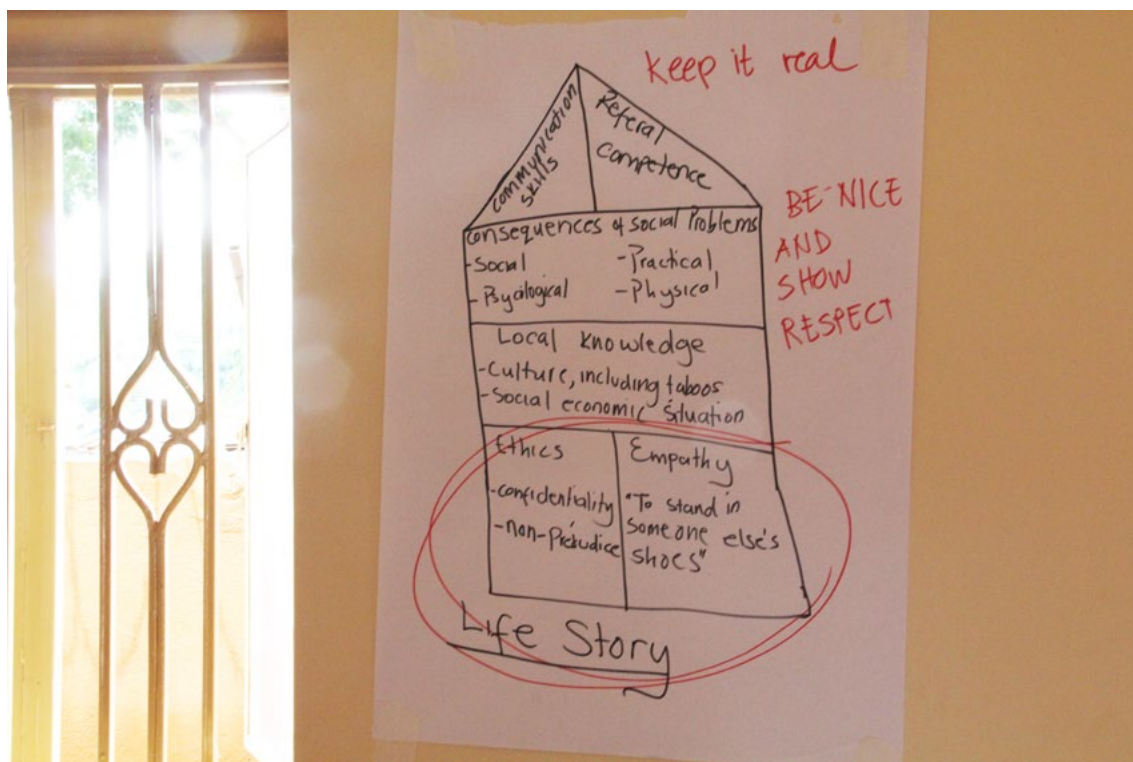 Keep it real
Communication
skills
Referal
competence
BE NICE
AND
SHOW
RESPECT
Consequences of social Problems
-Social
-Psycological
-Practical
-Physical
Local knowledge
-Culture, including taboos
-Social economic situation
Ethics
-confidentiality
-non-prejudice
Empathy
"To stand in
someone else's
shoes"
Life Story